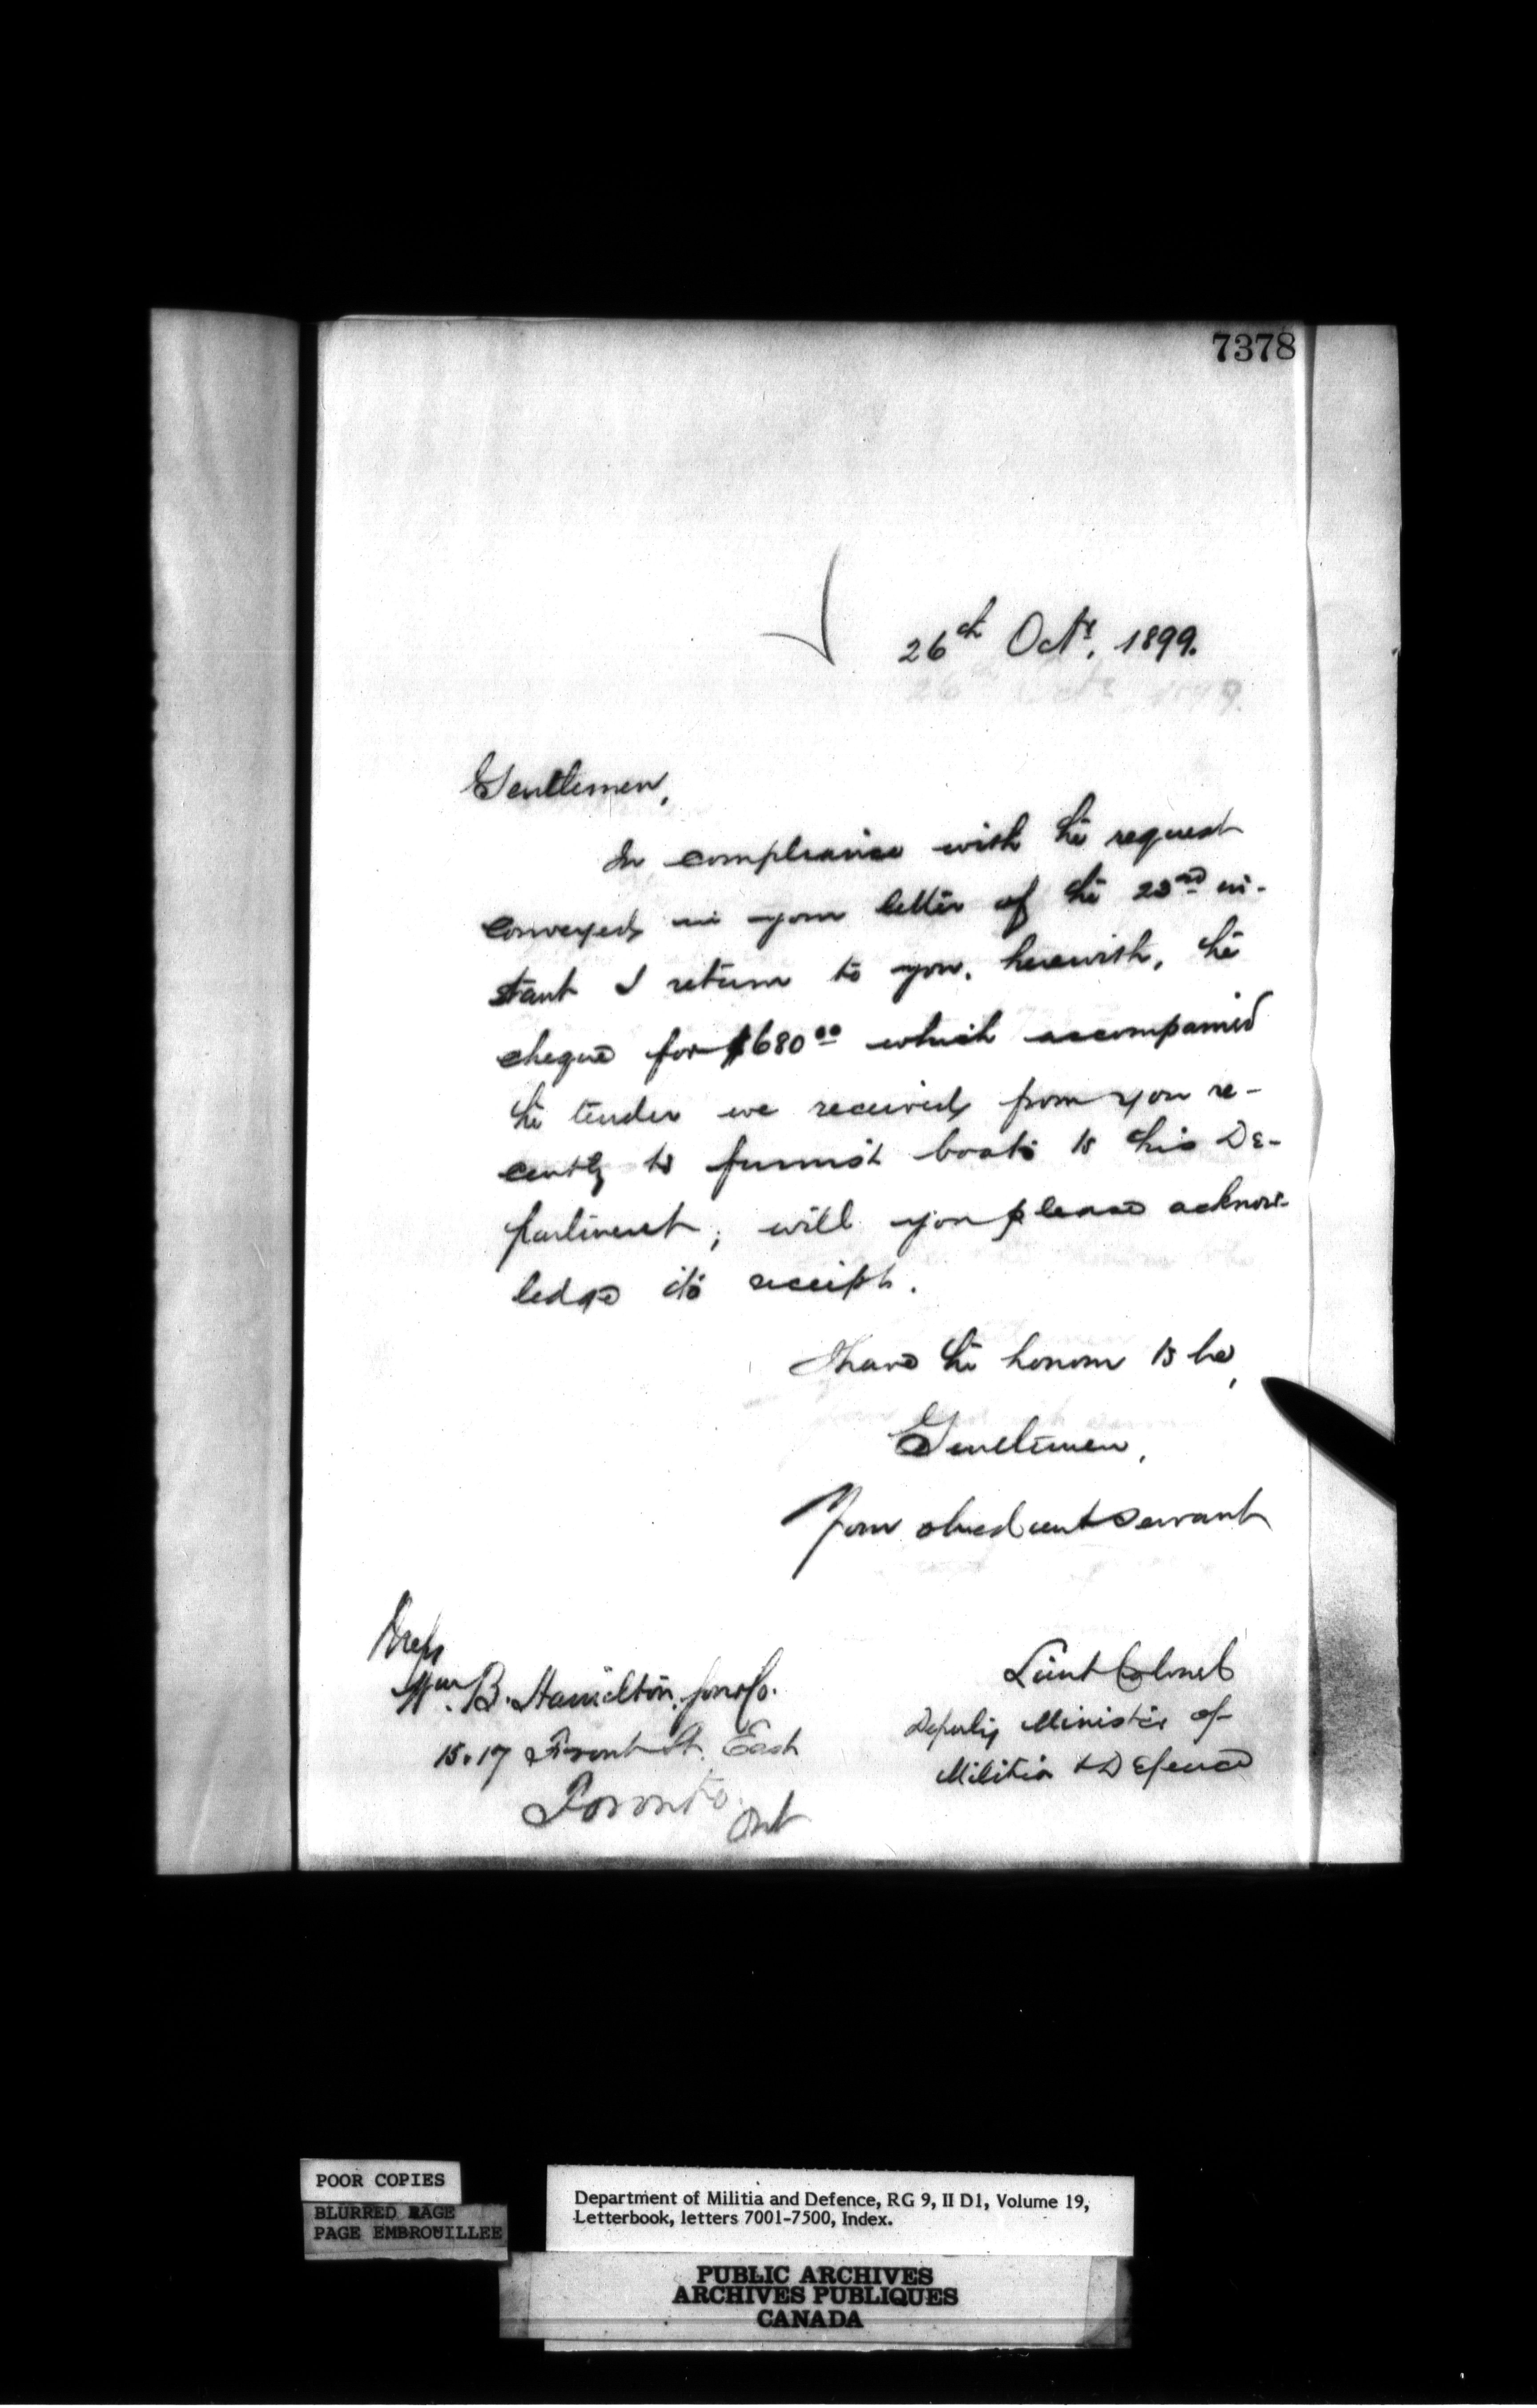 7378
26th Octr. 1899.
Gentlemen,
In compliance with the request
conveyed in your letter of the 23rd in-
stant I return to you, herewith, the
cheque for $680.00 which accompanied
the tender we received from you re-
cently to furnish boots to this De-
partment; will you please acknow-
ledge its receipt.
I have the honour to be,
Gentlemen,
Your obedient servant
Lieut Colonel
Deputy Minister of
Militia & Defence
Messrs
Wm. B. Hamilton, Sons & Co.
15.17 Front St. East
Toronto.
Ont
POOR COPIES
BLURRED PAGE
PAGE EMBROUILLEE
Department of Militia and Defence, RG 9, II D1, Volume 19,
Letterbook, letters 7001-7500, Index.
PUBLIC ARCHIVES
ARCHIVES PUBLIQUES
CANADA